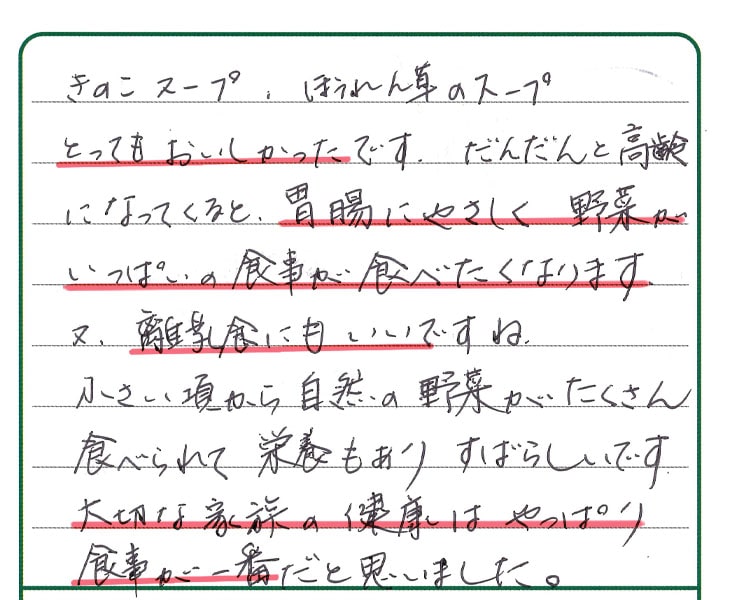 きのこスープ、ほうれん草のスープ
とってもおいしかったです。だんだんと高齢
になってくると、胃腸にやさしく 野菜が
いっぱいの食事が食べたくなります。
又、離乳食にもいいですね。
小さい頃から自然の野菜がたくさん
食べられて栄養もあり すばらしいです
大切な家族の健康はやっぱり
食事が一番だと思いました。